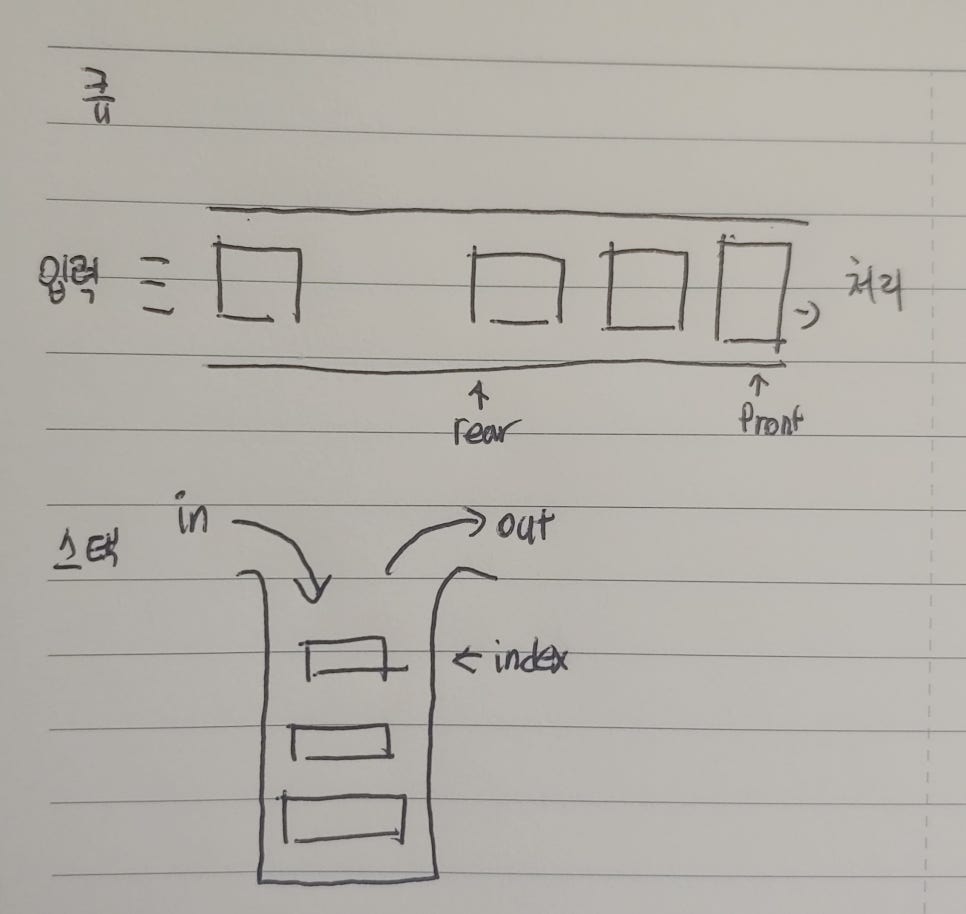 큐
입력
처리
rear
Pront
in
out
스택
← index